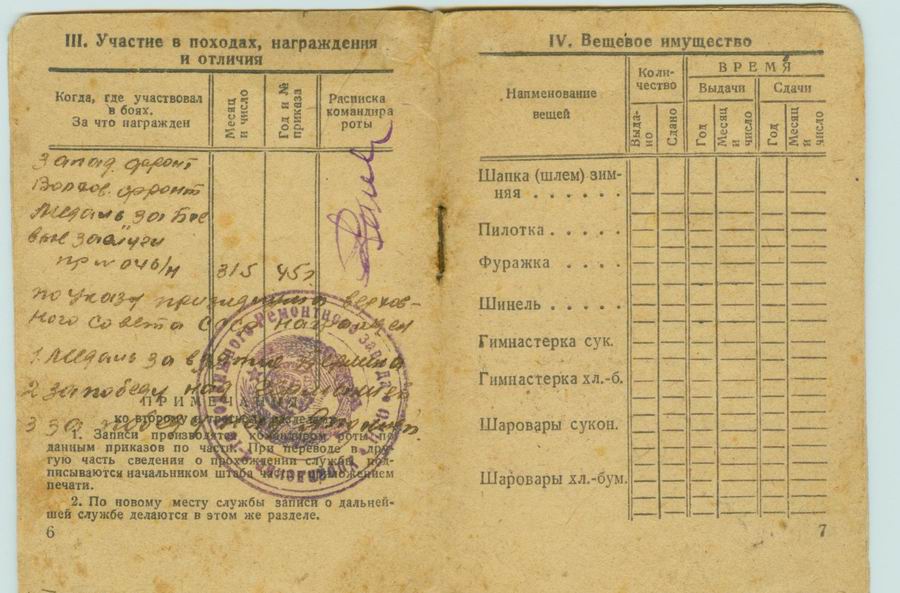 III. Участие в походах, награждения
и отличия
Когда, где участвовал
в боях.
За что награжден
Месяц
и число
Год и №
приказа
Расписка
командира
роты
Запад. фронт
Волхов. фронт
Медаль за Бое
вые заслуги
пр № 046/н 31/5 45г
по указу президиума верхов-
ного совета СССР награжден
1. Медаль за взятие
2 за победу над
3 за победу над
ПРИМЕЧАНИЯ
ко второму и
1. Записи производятся командиром роты по
данным приказов по части. При переводе в дру-
гую часть сведения о прохождении службы под-
писываются начальником штаба части с приложением
печати.
2. По новому месту службы записи о дальней-
шей службе делаются в этом же разделе.
6
IV. Вещевое имущество
Наименование
вещей
Коли-
чество
ВРЕМЯ
Выдачи
Сдачи
Выда-
но
Сдано
Год
Месяц
и
число
Год
Месяц
и
число
Шапка (шлем) зим-
няя . . . . . .
Пилотка . . . .
Фуражка . . . .
Шинель . . . .
Гимнастерка сук.
Гимнастерка хл.-б.
Шаровары сукон.
Шаровары хл.-бум.
7